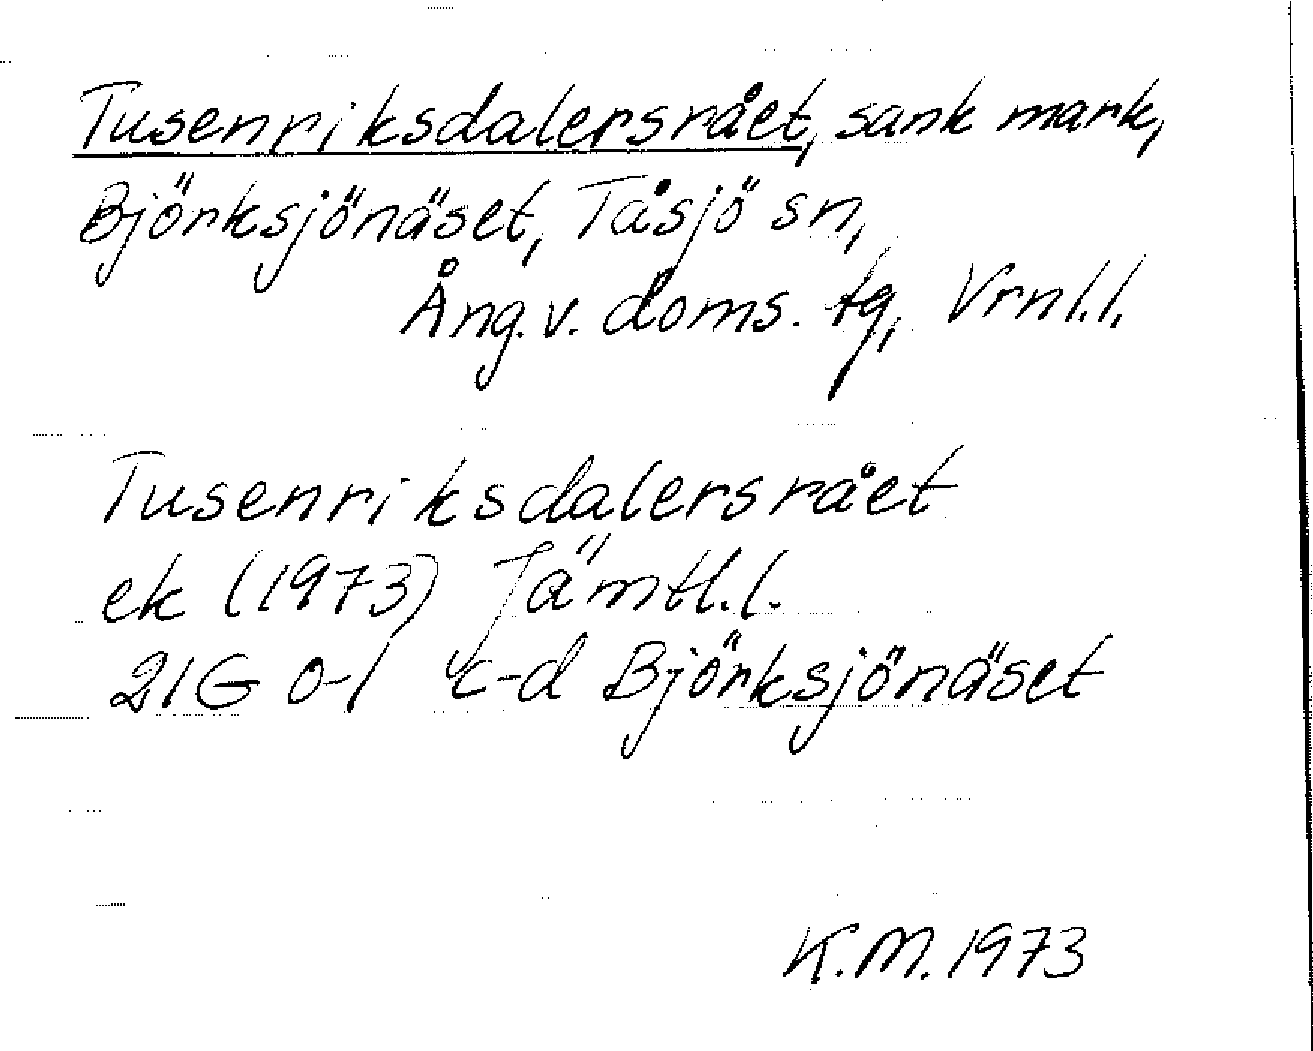 Tusenriksdalersrået, sank mark,
Björksjönäset, Tåsjö sn,
Ång. v. doms. tg, Vrnl.l.
Tusenriksdalersrået
ek (1973) Jämtl.l.
21G 0-1 c-d Björksjönäset
K.M. 1973